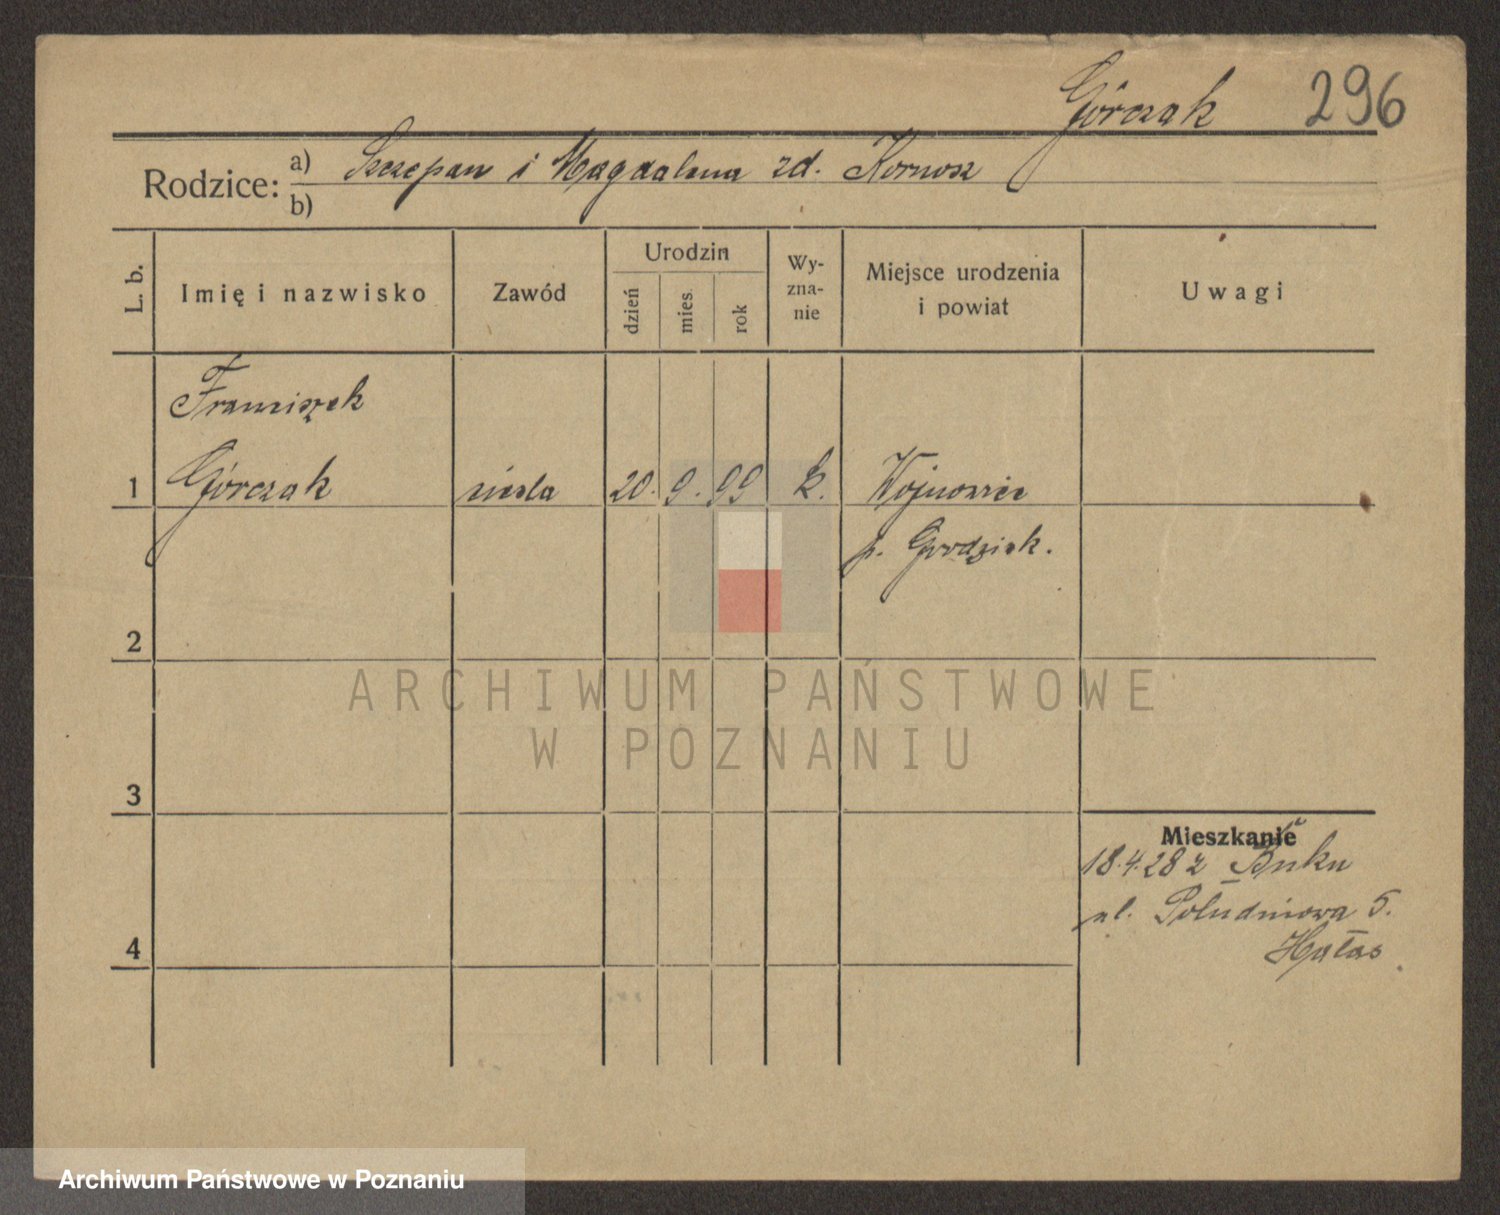 Górczak 296
Rodzice: a) Szczepan i Magdalena zd. Kornosz
b)
L. b. Imię i nazwisko Zawód Urodzin dzień mies. rok Wy-
zna-
nie Miejsce urodzenia
i powiat Uwagi
Franciszek
1 Górczak cieśla 20. 9. 99 k. Wojnowice
p. Grodzisk.
2
3
Mieszkanie
18.4.28 z Buku
ul. Południowa 5.
4
Hałas
ARCHIWUM PAŃSTWOWE
W POZNANIU
Archiwum Państwowe w Poznaniu